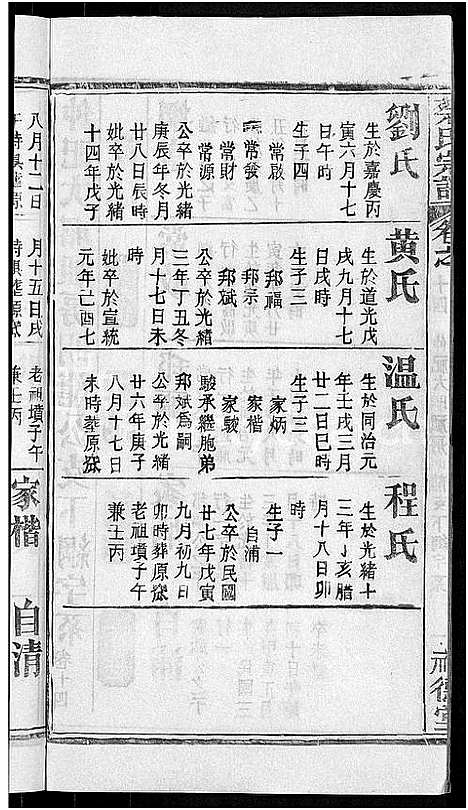 劉氏
生於嘉慶丙
寅六月十七
日午時
生子四
常啟
常發
常財
常源
公卒於光緒
庚辰年冬月
廿八日辰時
妣卒於光緒
十四年戊子
黃氏
生於道光戊
戌九月十七
日戌時
生子三
邦福
邦宗
邦斌
公卒於光緒
三年丁丑冬
月十七日未
時
妣卒於宣統
元年己酉七
温氏
生於同治元
年壬戌三月
廿二日巳時
生子三
家炳
家楷
家駿
駿承繼胞弟
邦斌為嗣
公卒於光緒
廿六年庚子
八月十七日
未時葬原
程氏
生於光緒十
三年丁亥腊
月十八日卯
時
生子一
自浦
公卒於民國
廿七年戊寅
九月初九日
卯時葬原
老祖墳子午
兼壬丙
八月十二日
月十五日戌
老祖墳子午
兼壬丙
家楷
自清
氏宗譜